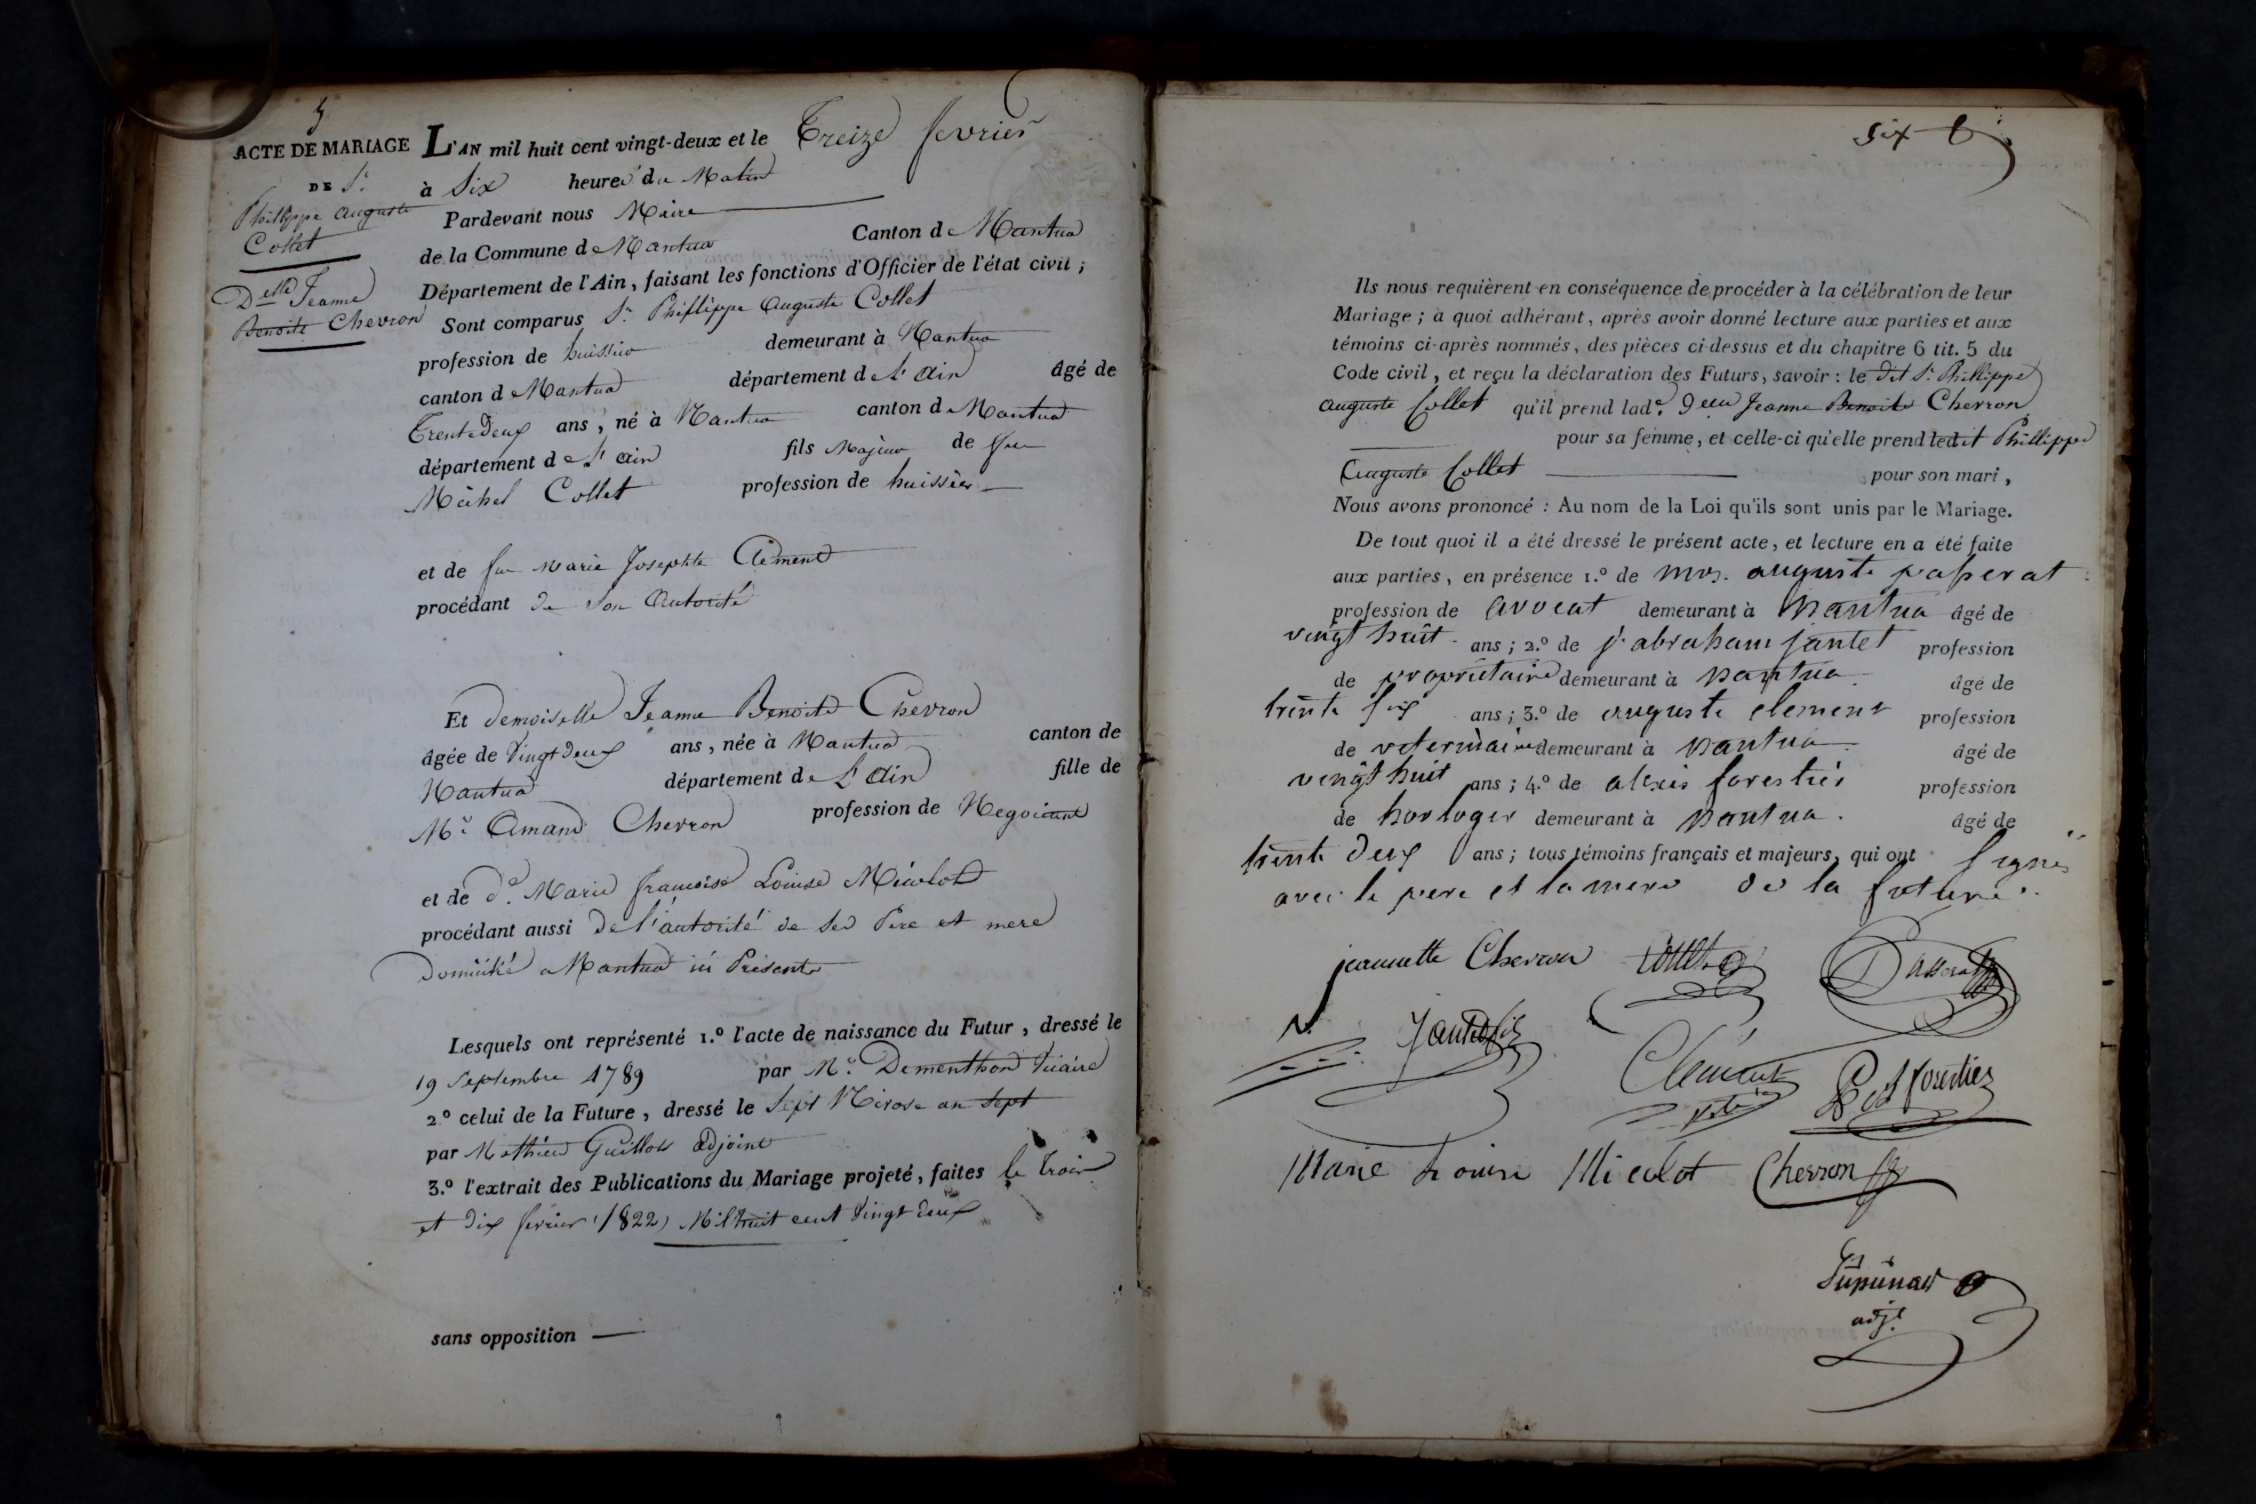 5
ACTE DE MARIAGE
DE Sr
Phillippe auguste
Collet
Delle Jeanne
Benoite Chevron
L'AN mil huit cent vingt-deux et le Treize fevrier
à Six heures du Matin
Pardevant nous Maire
de la Commune de Nantua Canton de Nantua
Département de l'Ain, faisant les fonctions d'Officier de l'état civil ;
Sont comparus Sr Phillippe auguste Collet
profession de huissier demeurant à Nantua
canton de Nantua département de l'ain âgé de
Trente deux ans, né à Nantua canton de Nantua
département de l'ain fils Majeur de feu
Michel Collet profession de huissier
et de feu Marie Josephte Clément
procédant de son autorité
Et demoiselle Jeanne Benoite Chevron
âgée de Vingt deux ans, née à Nantua canton de
Nantua département de l'ain fille de
Mr Amand Chevron profession de Negociant
et de de Marie françoise Louise Micolot
procédant aussi de l'autorité de ses Pere et mere
Domicilié a Nantua ici Présents
Lesquels ont représenté 1.º l'acte de naissance du Futur, dressé le
19 Septembre 1789 par Mr Dementhon Vicaire
2.º celui de la Future, dressé le Sept Nivose an sept
par Mathieu Guillot adjoint
3.º l'extrait des Publications du Mariage projeté, faites le trois
et dix fevrier (1822) Mil huit cent vingt deux
sans opposition
six 6
Ils nous requièrent en conséquence de procéder à la célébration de leur
Mariage ; à quoi adhérant, après avoir donné lecture aux parties et aux
témoins ci-après nommés, des pièces ci-dessus et du chapitre 6 tit. 5 du
Code civil, et reçu la déclaration des Futurs, savoir : le dit Sr Phillippe
auguste Collet qu'il prend lade Delle Jeanne Benoite Chevron
pour sa femme, et celle-ci qu'elle prend ledit Phillippe
Auguste Collet pour son mari,
Nous avons prononcé : Au nom de la Loi qu'ils sont unis par le Mariage.
De tout quoi il a été dressé le présent acte, et lecture en a été faite
aux parties, en présence 1.º de auguste passerat
profession de avocat demeurant à Nantua âgé de
vingt huit ans ; 2.º de Sr abraham jantet profession
de proprietaire demeurant à nantua âgé de
trente six ans ; 3.º de auguste clement profession
de veterinaire demeurant à nantua âgé de
vingt huit ans ; 4.º de alexis forestier profession
de horloger demeurant à nantua. âgé de
trente deux ans ; tous témoins français et majeurs, qui ont signés
avec le pere et la mere de la future.
jeannette Chevron Collet Passerat
Jantet fils
Clément
vete forestier
Marie Louise Micolot Chevron
adjt